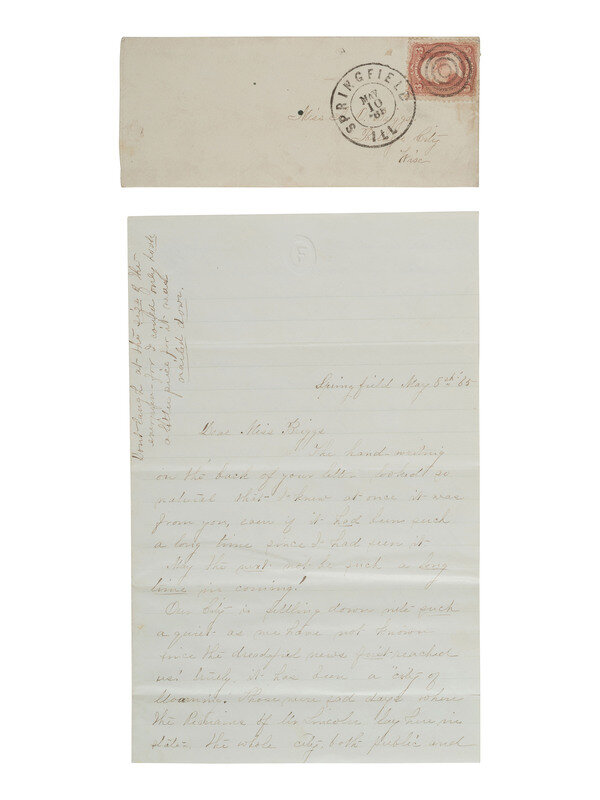 SPRINGFIELD
MAY
10
ILL
3 3
Miss
City
Wisc
Don't laugh at the size of the
envelope for I could only
a little piece for it was
nailed down.
Springfield May 8th 65
Dear Miss Briggs
The hand writing
on the back of your letter looked so
natural that I knew at once it was
from you, even if it had been such
a long time since I had seen it
May the next not be such a long
time in coming!
Our City is settling down into such
a quiet as we have not known
since the dreadful news first reached
us! truly, it has been a "city of
Mourning! Those were sad days where
the Remains of Mr Lincoln lay here in
state. the whole city, both public and